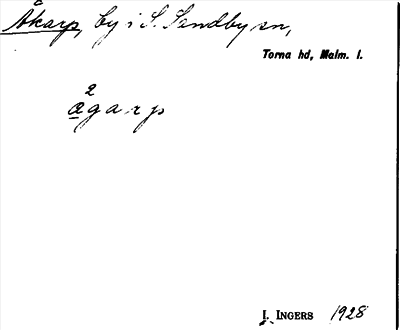 Åkarp, by i S. Sandby sn,
Torna hd, Malm. l.
2
ægarp
I. INGERS 1928